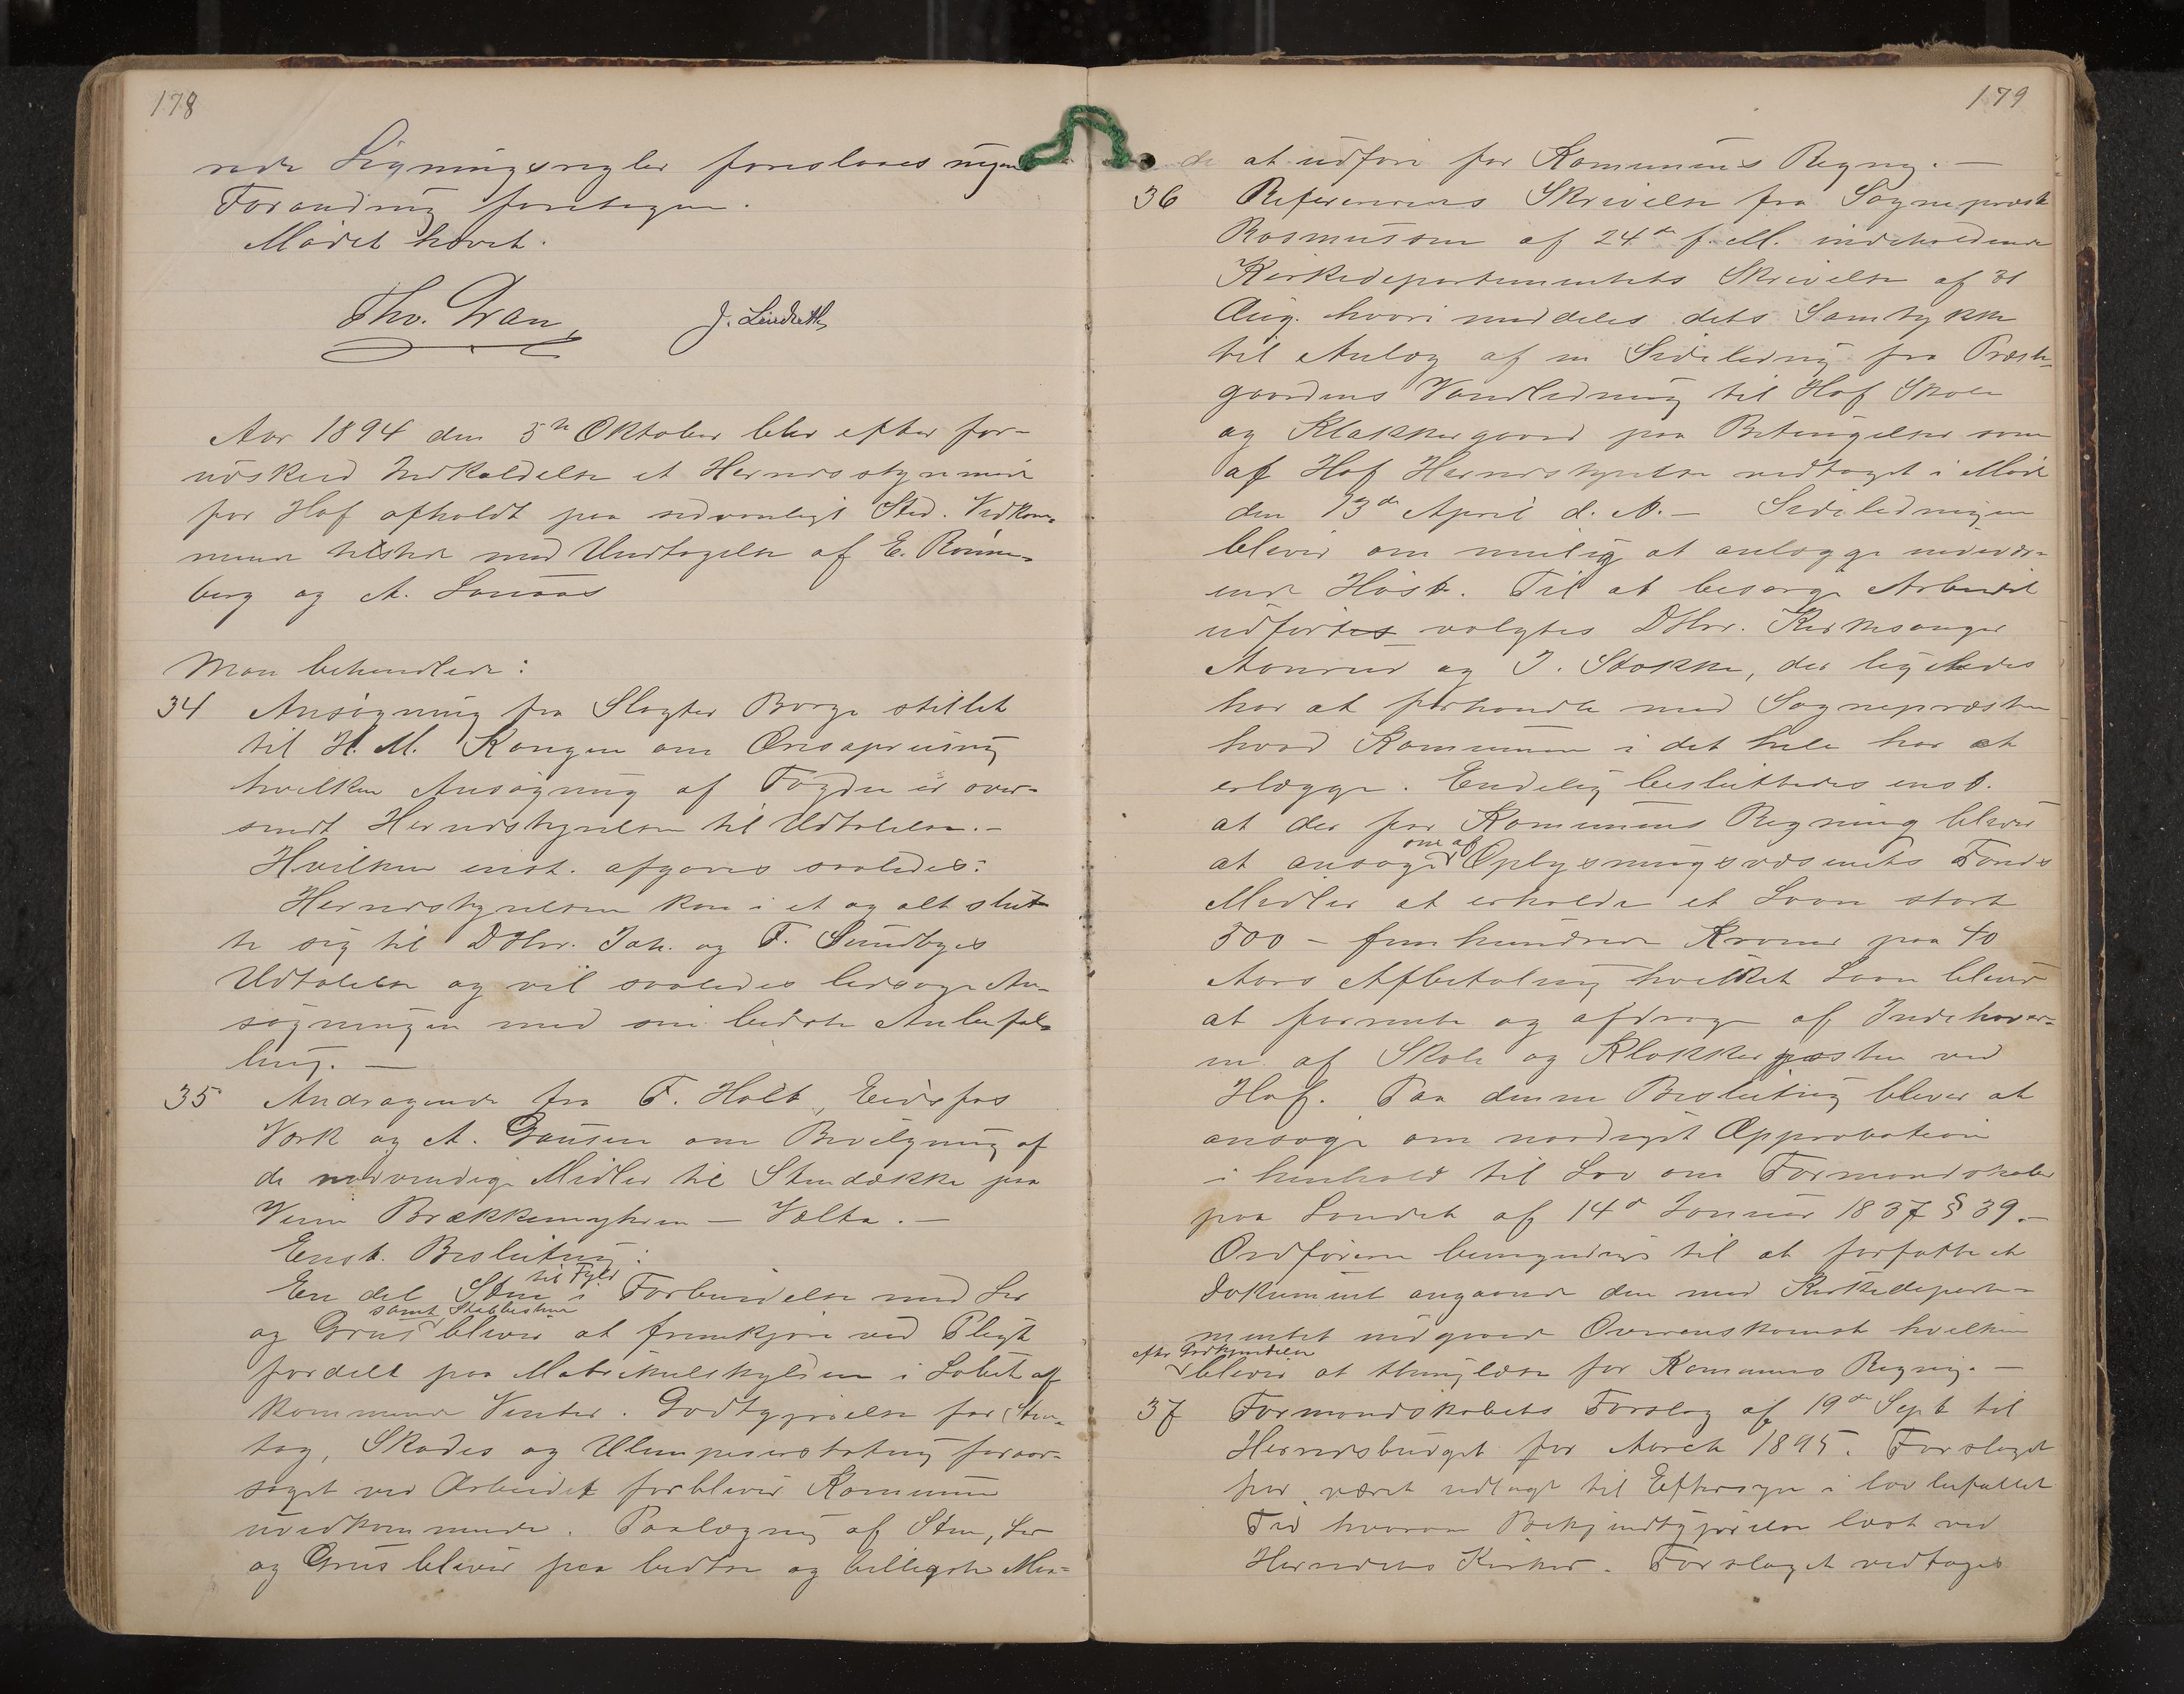 178
rede Ligningsregler foreslaaes ingen
Forandring foretagen.
Mødet hævet.
Tho. Gran J. Lindseth
Aar 1894 den 5te Oktober blev efter for-
udskeed Indkaldelse et Herredsstyremøde
for Hof afholdt paa sedvanligt Sted. Vedkom-
mende tilstede med Undtagelse af E. Rønne-
berg og A. Sønaas
Man behandlede:
34 Ansøgning fra Slagter Borge stillet
til H. M. Kongen om Oreisning
hvilken Ansøgning af Fogden er over-
sendt Herredstyrelsen til Udtalelse.-
Hvilken enst. afgaves saaledes:
Herredstyrelsen kan i et og alt slut-
te sig til DHrr. Joh. og F. Sundbyes
Udtalelse og vil saaledes ledsage An-
søgningen med sin bedste Anbefal-
ling. —
35 Andragende fra F. Holt, Eidsfos
Værk og A. Gausen om Bevilgning af
de nødvendige Midler til Stendække paa
Veien Brækkemyhren - Valta. —
Enst. Beslutning:
En del Sten til Fyld i Forbindelse med Ler
og Grus samt Stabbestene bliver at fremkjøre ved Pligt
fordelt paa Matrikulskylden i Løbet af
kommende Vinter. Godtgjørelse for Sten-
tag, Skades og Ulempeserstatning foraar-
saget ved Arbeidet forbliver Kommunen
uvedkommende. Paalægning af Sten, Ler
og Grus bliver paa bedste og billigste Maa-
179
de at udføre for Komunens Regng. —
36 Refereredes Skrivelse fra Sognepræst
Rasmussen af 24de f. M. indeholdende
Kirkedepartementets Skrivelse af 31
Aug. hvori meddeles dets Samtykke
til Anlæg af en Sideledning fra Præste-
gaardens Vandledning til Hof Skole
og Klokkergaard paa Betingelser som
af Hof Herredstyrelse vedtaget i Møde
den 13de April d. A. — Sideledningen
bliver om mulig at anlægge nuvær-
ende Høst. Til at besørge Arbeidet
udførtes valgtes DHrr. Kirkesanger
Aonrud og J. Stokke, der ligeledes
har at forhandle med Sognepræsten
hvad Kommunen i det hele har at
erlægge. Endelig besluttedes enst.
at der for Komunens Regning bliver
at ansøge om af Oplysningsvæsenets Fonds
Midler at erholde et Laan stort
500 - fem hundrede Kroner paa 40
Aars Afbetaling hvilket Laan bliver
at forrente og afdrage af Indehaver-
en af Skole og Klokkerposten ved
Hof. Paa denne Beslutning bliver at
ansøge om nødvigst Approbation
i henhold til Lov om Formandskaber
paa Landet af 14d Januar 1837 § 39.—
Ordføreren bemyndiges til at forfatte et
Dokument angaaende den med Kirkedeparte-
mentet indgaaede Overenskomst hvilken
efter Godkjendelse bliver at thinglæse for Komunens Regning. —
37 Formandskabets Forslag af 19de Sept til
Herredsbudget for Aaret 1895. Forslaget
har været udlagt til Eftersyn i lovbefattet
Tid hvorom Bekjendtgjørelse læst ved
Herredets Kirker. Forslaget vedtages